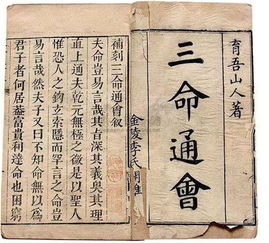 育吾山人著
三命通會
金陵李氏
補刻三命通會叙
夫命豈易言哉其旨深其義奧其理
直上通夫乾元無極之微是以聖人
惟恐人之鉤玄索隱而罕言之命豈
易言哉然夫子又曰不知命無以為
君子者何居蓋富貴利達命也困窮